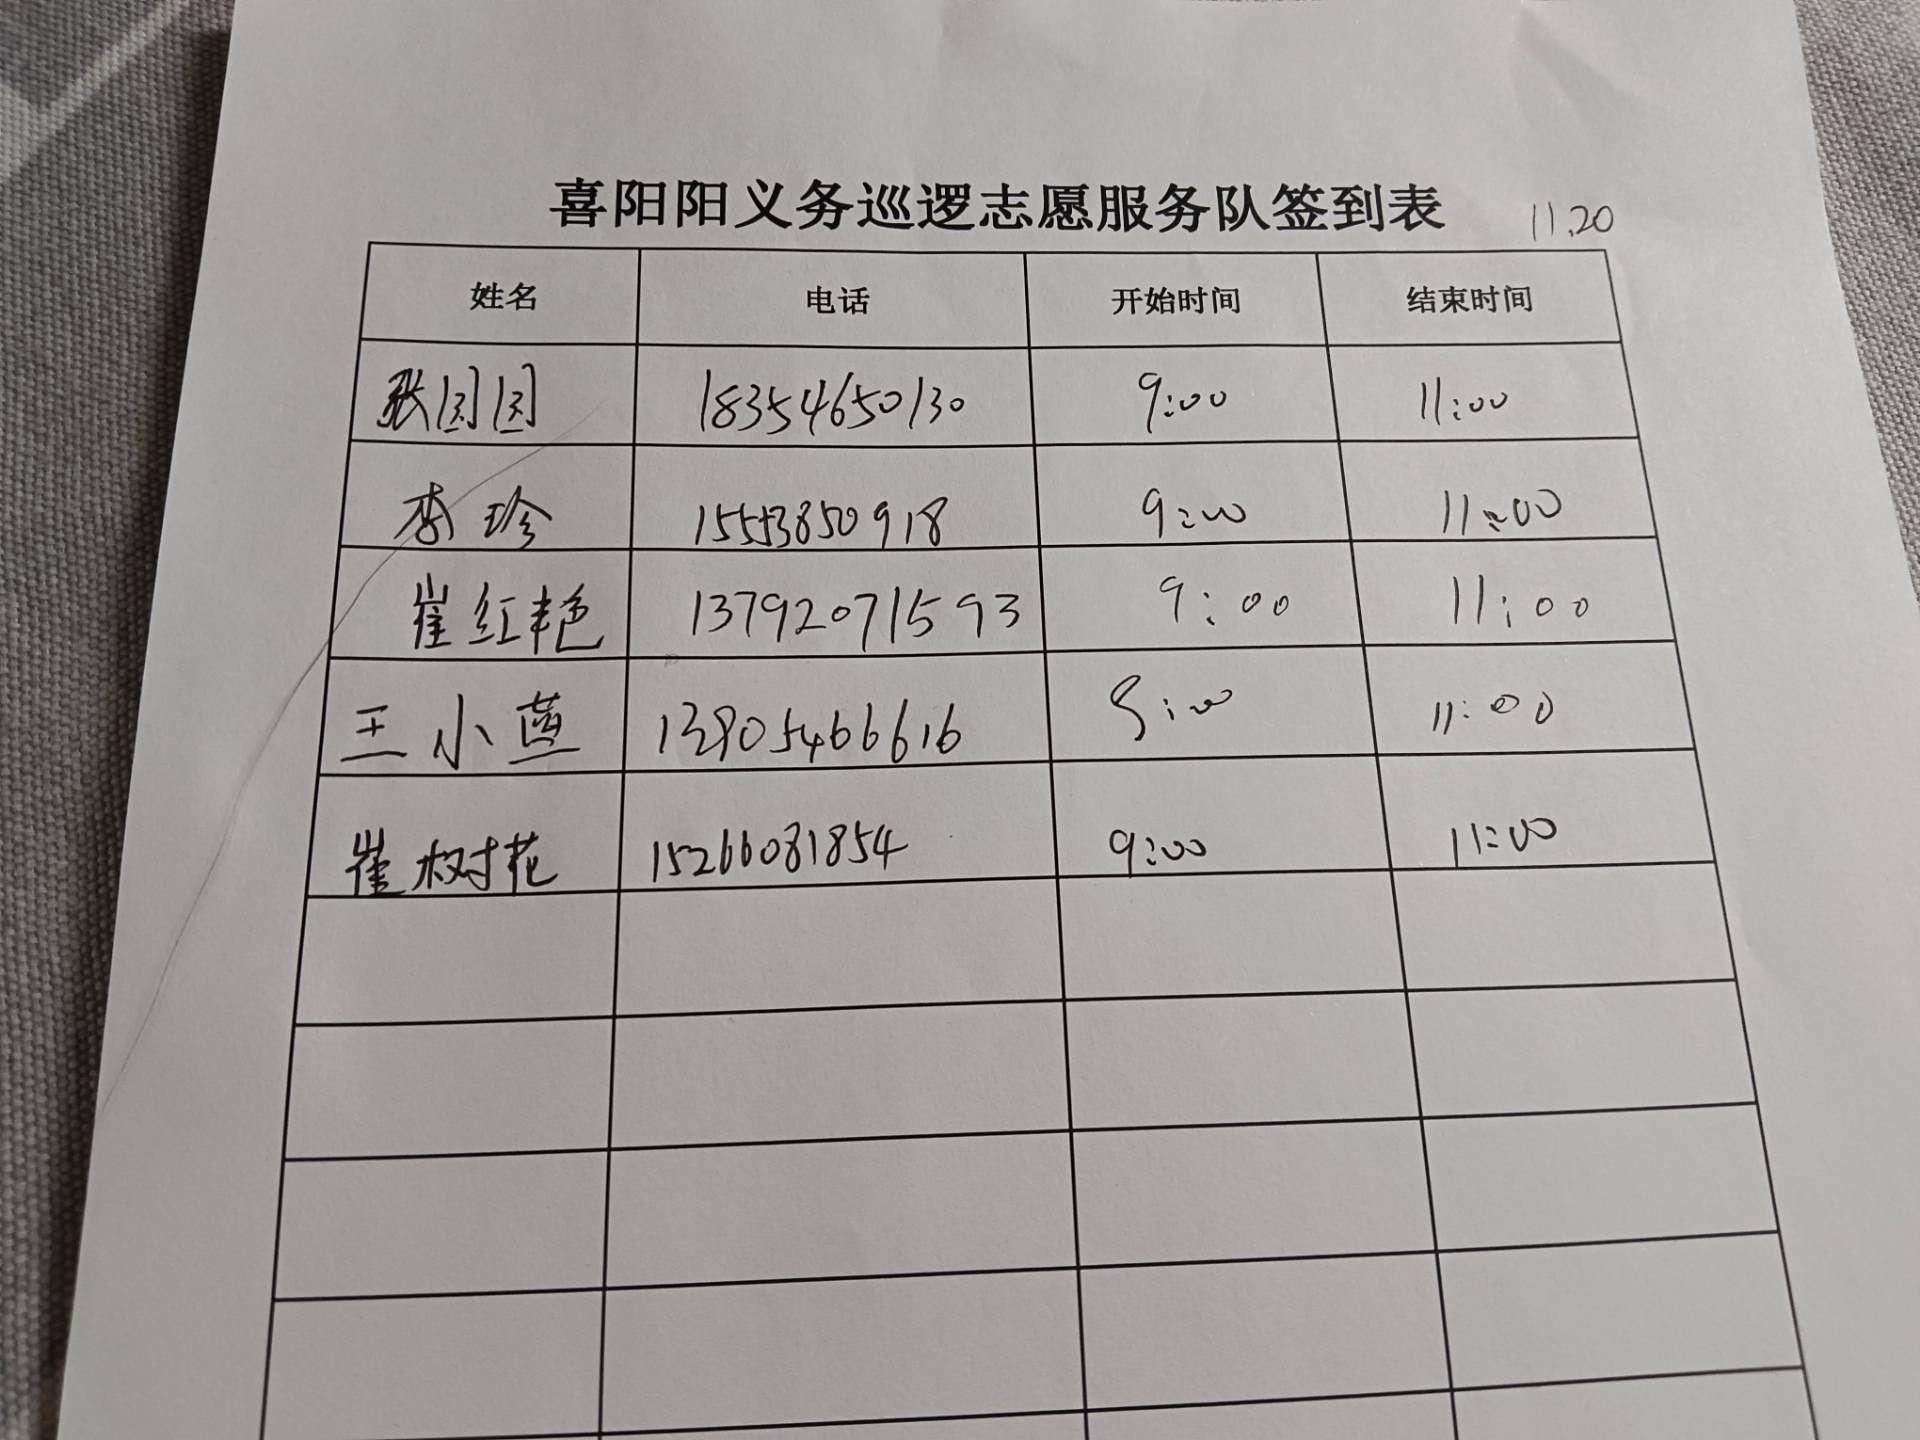 喜阳阳义务巡逻志愿服务队签到表 11.20
姓名 电话 开始时间 结束时间
张园园 18354650130 9:00 11:00
李珍 15553850918 9:00 11:00
崔红艳 13792071593 9:00 11:00
王小燕 13905466616 9:00 11:00
崔树花 15266081854 9:00 11:00